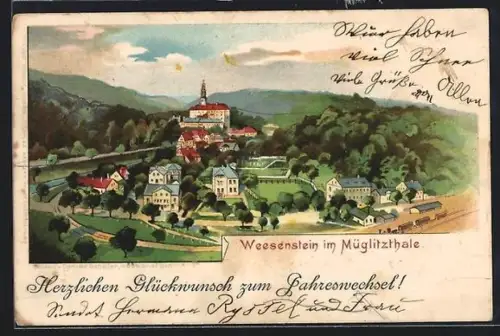 Wier haben
viel Schnee
Viele Grüße
von Allen
Weesenstein im Müglitzthale.
Herzlichen Glückwunsch zum Jahreswechsel!
Sendet Hermann Ryssel und Frau